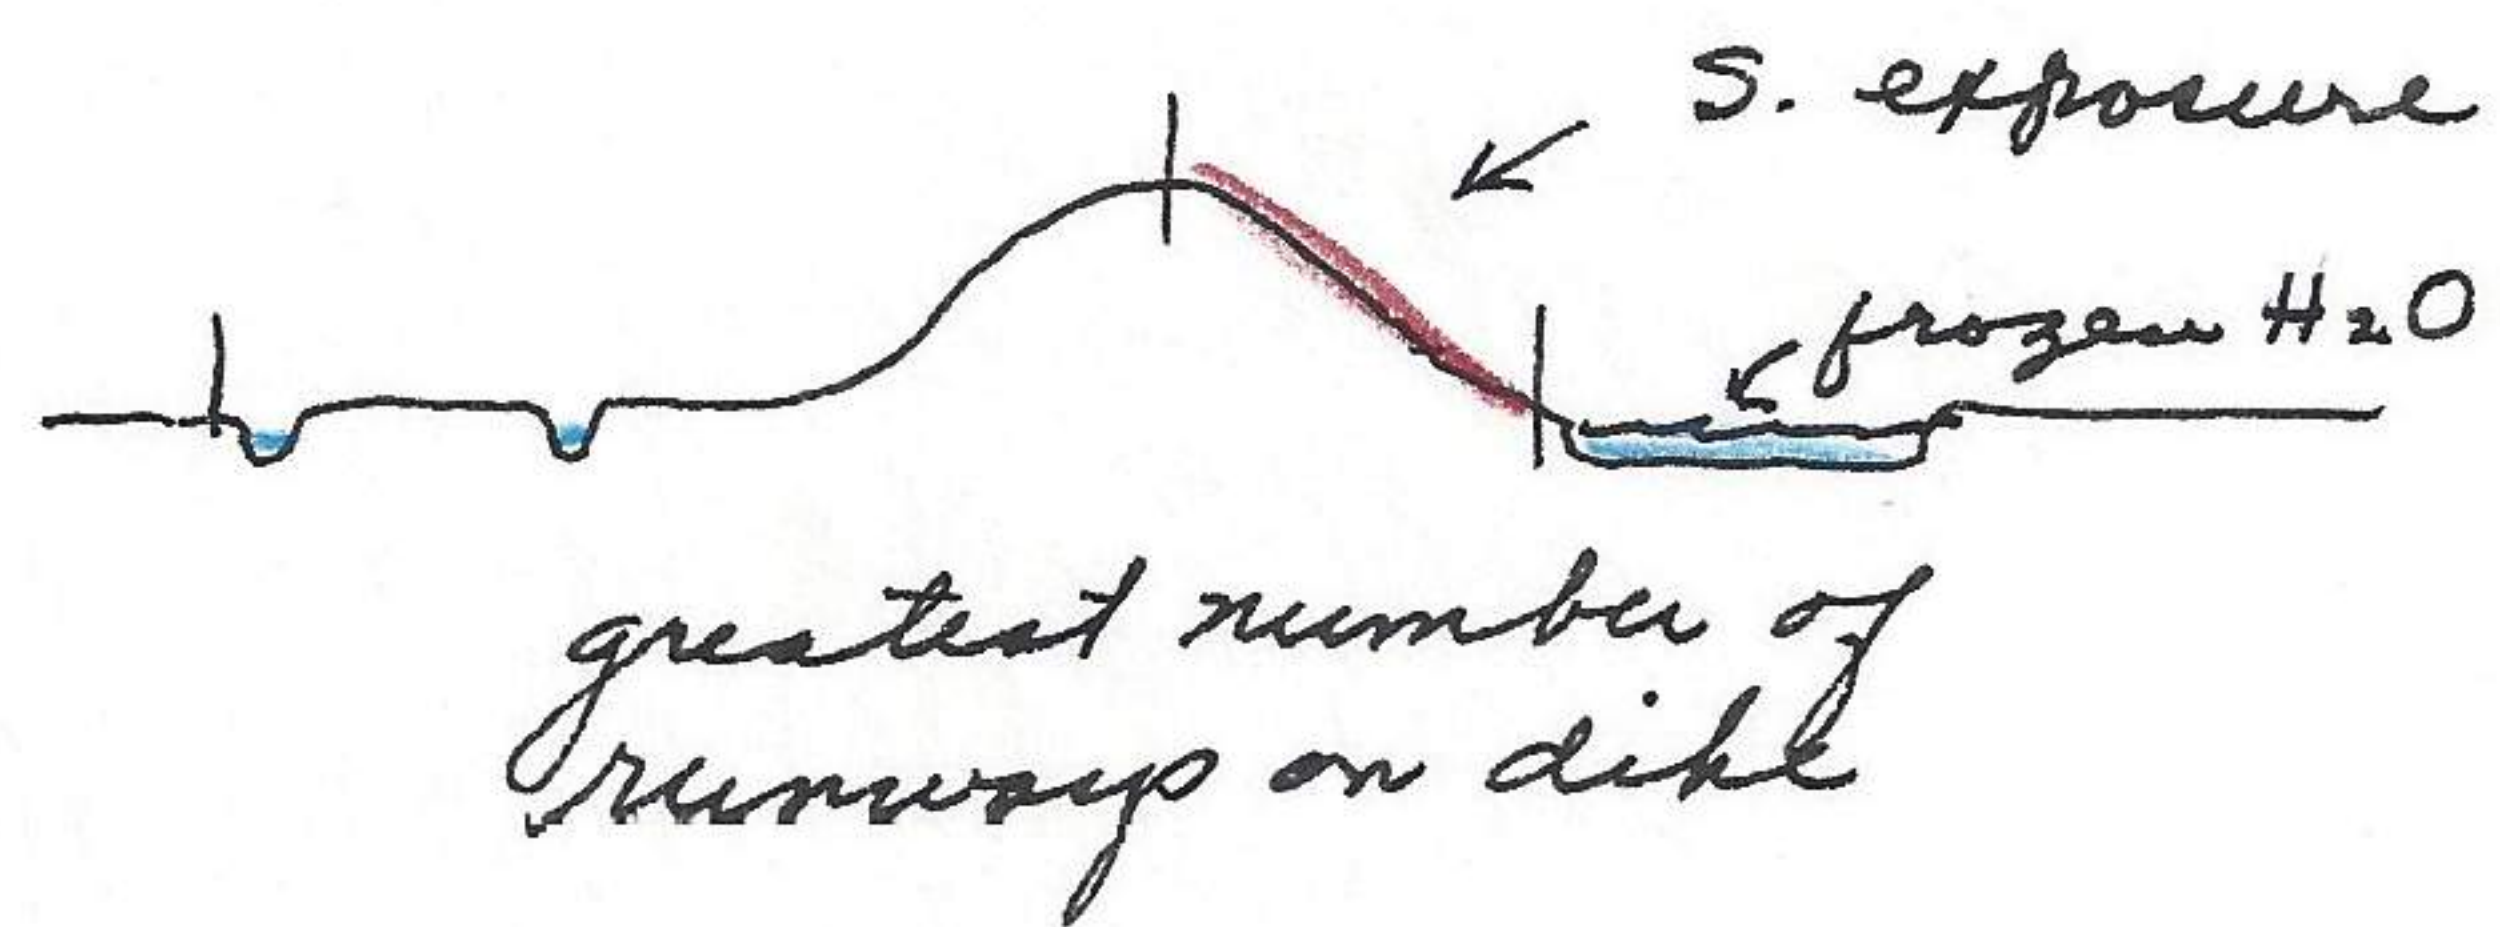 S. exposure
frozen H2O
greatest number of
runways on dike